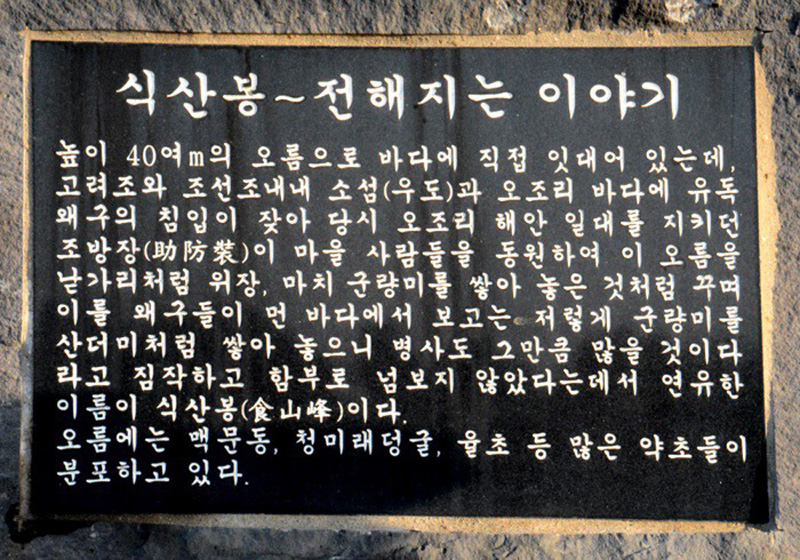 식산봉~전해지는 이야기
높이 40여m의 오름으로 바다에 직접 잇대어 있는데,
고려조와 조선조내내 소섬(우도)과 오조리 바다에 유독
왜구의 침입이 잦아 당시 오조리 해안 일대를 지키던
조방장(助防裝)이 마을 사람들을 동원하여 이 오름을
낟가리처럼 위장, 마치 군량미를 쌓아 놓은 것처럼 꾸며
이를 왜구들이 먼 바다에서 보고는 저렇게 군량미를
산더미처럼 쌓아 놓으니 병사도 그만큼 많을 것이다
라고 짐작하고 함부로 넘보지 않았다는데서 연유한
이름이 식산봉(食山峰)이다.
오름에는 맥문동, 청미래덩굴, 울초 등 많은 약초들이
분포하고 있다.